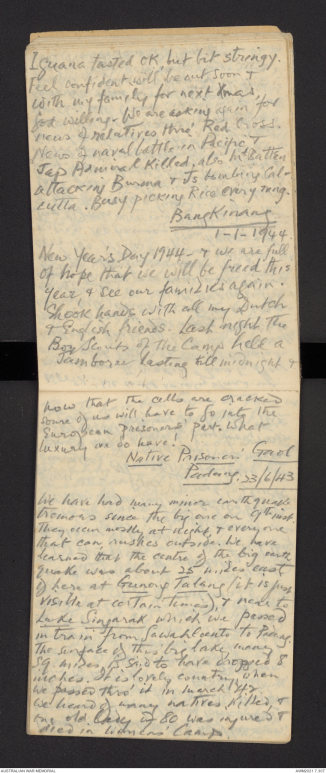 Iguana tasted OK, but bit stringy.
Feel confident will be out soon &
with my family for next Xmas,
God willing. We are asking again for
news of relatives thro' Red Cross.
News of naval battle in Pacific, &
Jap Admiral Killed, also Ld. Batten
attacking Burma & Js bombing Cal-
cutta. Busy picking Rice every morng.
BangKinang
1-1-1944
New Year's Day 1944 - & we are full
of hope that we will be freed this
year & see our families again.
Shook hands with all my Dutch
& English friends. Last night the
Boy Scouts of the Camp held a
Jamboree lasting till midnight &
now that the cells are cracked
some of us will have to go into the
European prisoners' part. What
luxury we do have!
Native Prisoners' Gaol
Padang. 23/6/43
We have had many minor earthquake
tremors since the big one on 9th inst
They occur mostly at night & everyone
that can rushes outside. We have
learned that the centre of the big earth
quake was about 25 miles east
of here at Gunong Talang (it is just
visible at certain times), & near to
Lake Singarak which we passed
in train from Sawahloento to Padang.
The surface of this big lake, many
sq. miles, is said to have dropped 8
inches. It is lovely country, when
we passed thro' it in March '42
We heard of many natives killed, &
one old lady of 80 was injured &
died in Womens Camp.
AUSTRALIAN WAR MEMORIAL